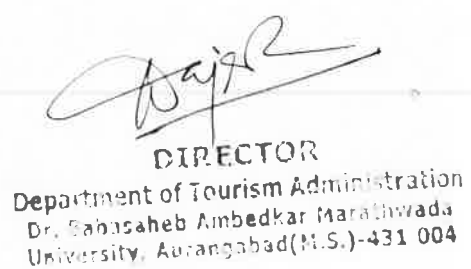 DIRECTOR
Department of Tourism Administration
Dr. Babasaheb Ambedkar Marathwada
University, Aurangabad(M.S.)-431 004